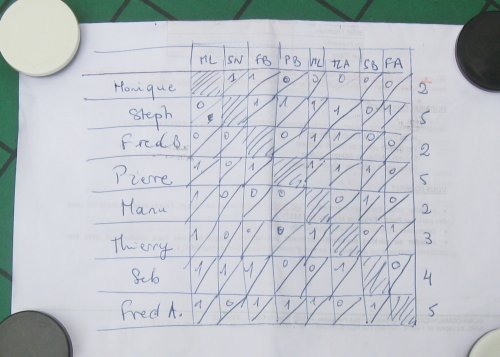 ML SN FB PB ML TLA SB FA
Monique 1 1 0 0 0 0 0 2
Steph 0 1 1 1 1 0 1 5
Fred B. 0 0 0 1 1 0 0 2
Pierre 1 0 1 1 1 1 0 5
Manu 1 0 0 0 0 1 0 2
Thierry 1 0 0 0 1 0 1 3
Seb 1 1 1 0 0 1 0 4
Fred A. 1 0 1 1 1 0 1 5